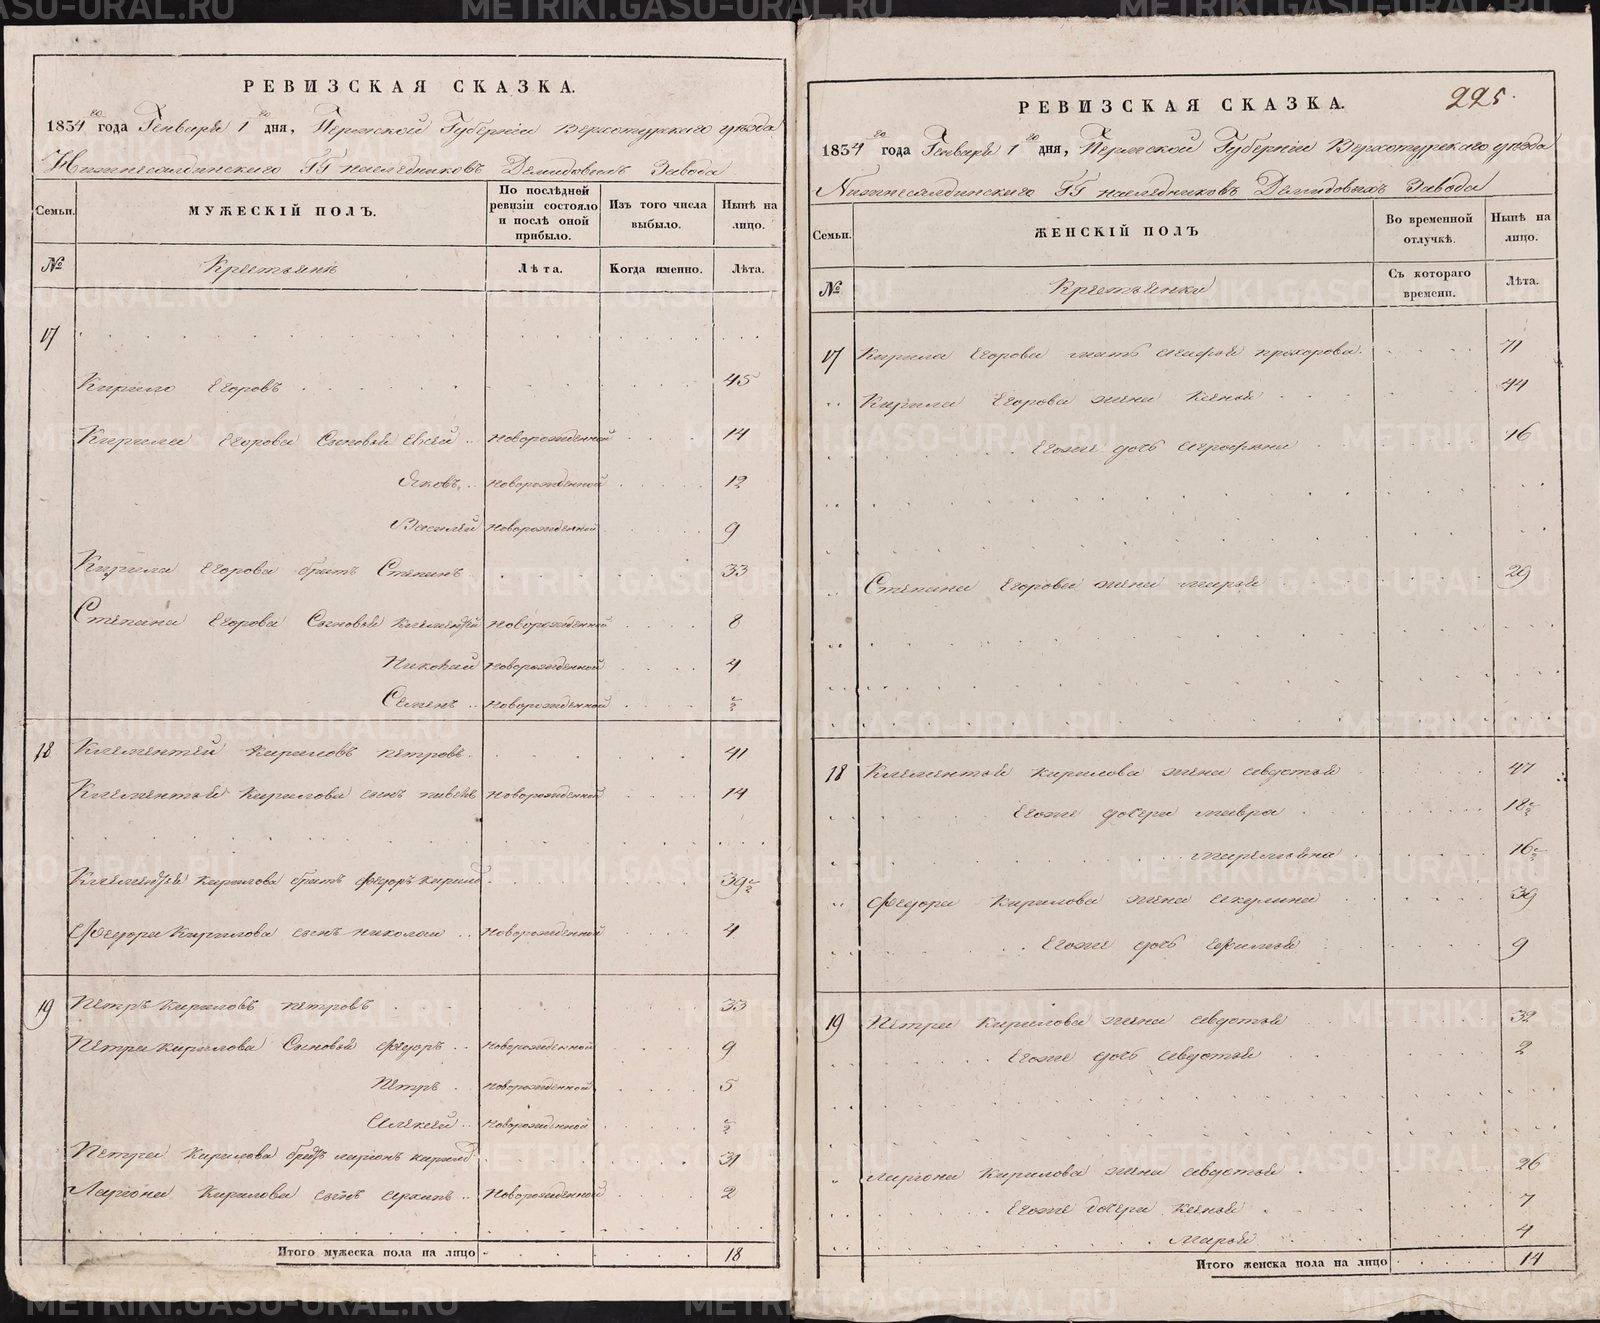 РЕВИЗСКАЯ СКАЗКА.
1834го года Генваря 1го дня, Пермской Губерніи Верхотурскаго уѣзда
Нижнесалдинскаго ГГ наслѣдниковъ Демидовыхъ Завода
Семьи.
МУЖЕСКІЙ ПОЛЪ.
По послѣдней ревизіи состояло и послѣ оной прибыло.
Изъ того числа выбыло.
Нынѣ на лицо.
№
Крестьянъ
Лѣта.
Когда именно.
Лѣта.
17
Кирило Егоровъ 45
Кирила Егорова Сыновья Евсей новорожденной 14
Яковъ новорожденной 12
Василей новорожденной 9
Кирила Егорова братъ Степанъ 33
Степана Егорова Сыновья Клементей новорожденной 8
Николай новорожденной 4
Семенъ новорожденной ½
18 Клементей Кириловъ Петровъ 41
Клементья Кирилова сынъ павелъ новорожденной 14
Клементья Кирилова братъ Федоръ Кирилов 39½
Федора Кирилова сынъ николай новорожденной 4
19 Петръ Кириловъ Петровъ 33
Петра Кирилова Сыновья Федоръ новорожденной 9
Петръ новорожденной 5
Алексей новорожденной ½
Петра Кирилова братъ ларионъ Кирилов 31
Лариона Кирилова сынъ архипъ новорожденной 2
Итого мужеска пола на лицо 18
225.
РЕВИЗСКАЯ СКАЗКА.
1834го года Генваря 1го дня, Пермской Губерніи Верхотурскаго уѣзда
Нижнесалдинскаго ГГ наслѣдниковъ Демидовыхъ Завода
Семьи.
ЖЕНСКІЙ ПОЛЪ
Во временной отлучкѣ.
Нынѣ на лицо.
№
Крестьянки
Съ котораго времени.
Лѣта.
17 Кирила Егорова мать агафья прохорова 71
Кирила Егорова жена Ксенья 44
Егоже дочь аграфена 16
Степана Егорова жена марья 29
18 Клементья Кирилова жена авдотья 47
Егоже дочери мавра 18½
маремьяна 16½
Федора Кирилова жена акулина 39
Егоже дочь ефимья 9
19 Петра Кирилова жена авдотья 32
Егоже дочь авдотья 2
лариона Кирилова жена авдотья 26
Егоже дочери Ксенья 7
марья 4
Итого женска пола на лицо 14
METRIKI.GASO-URAL.RU